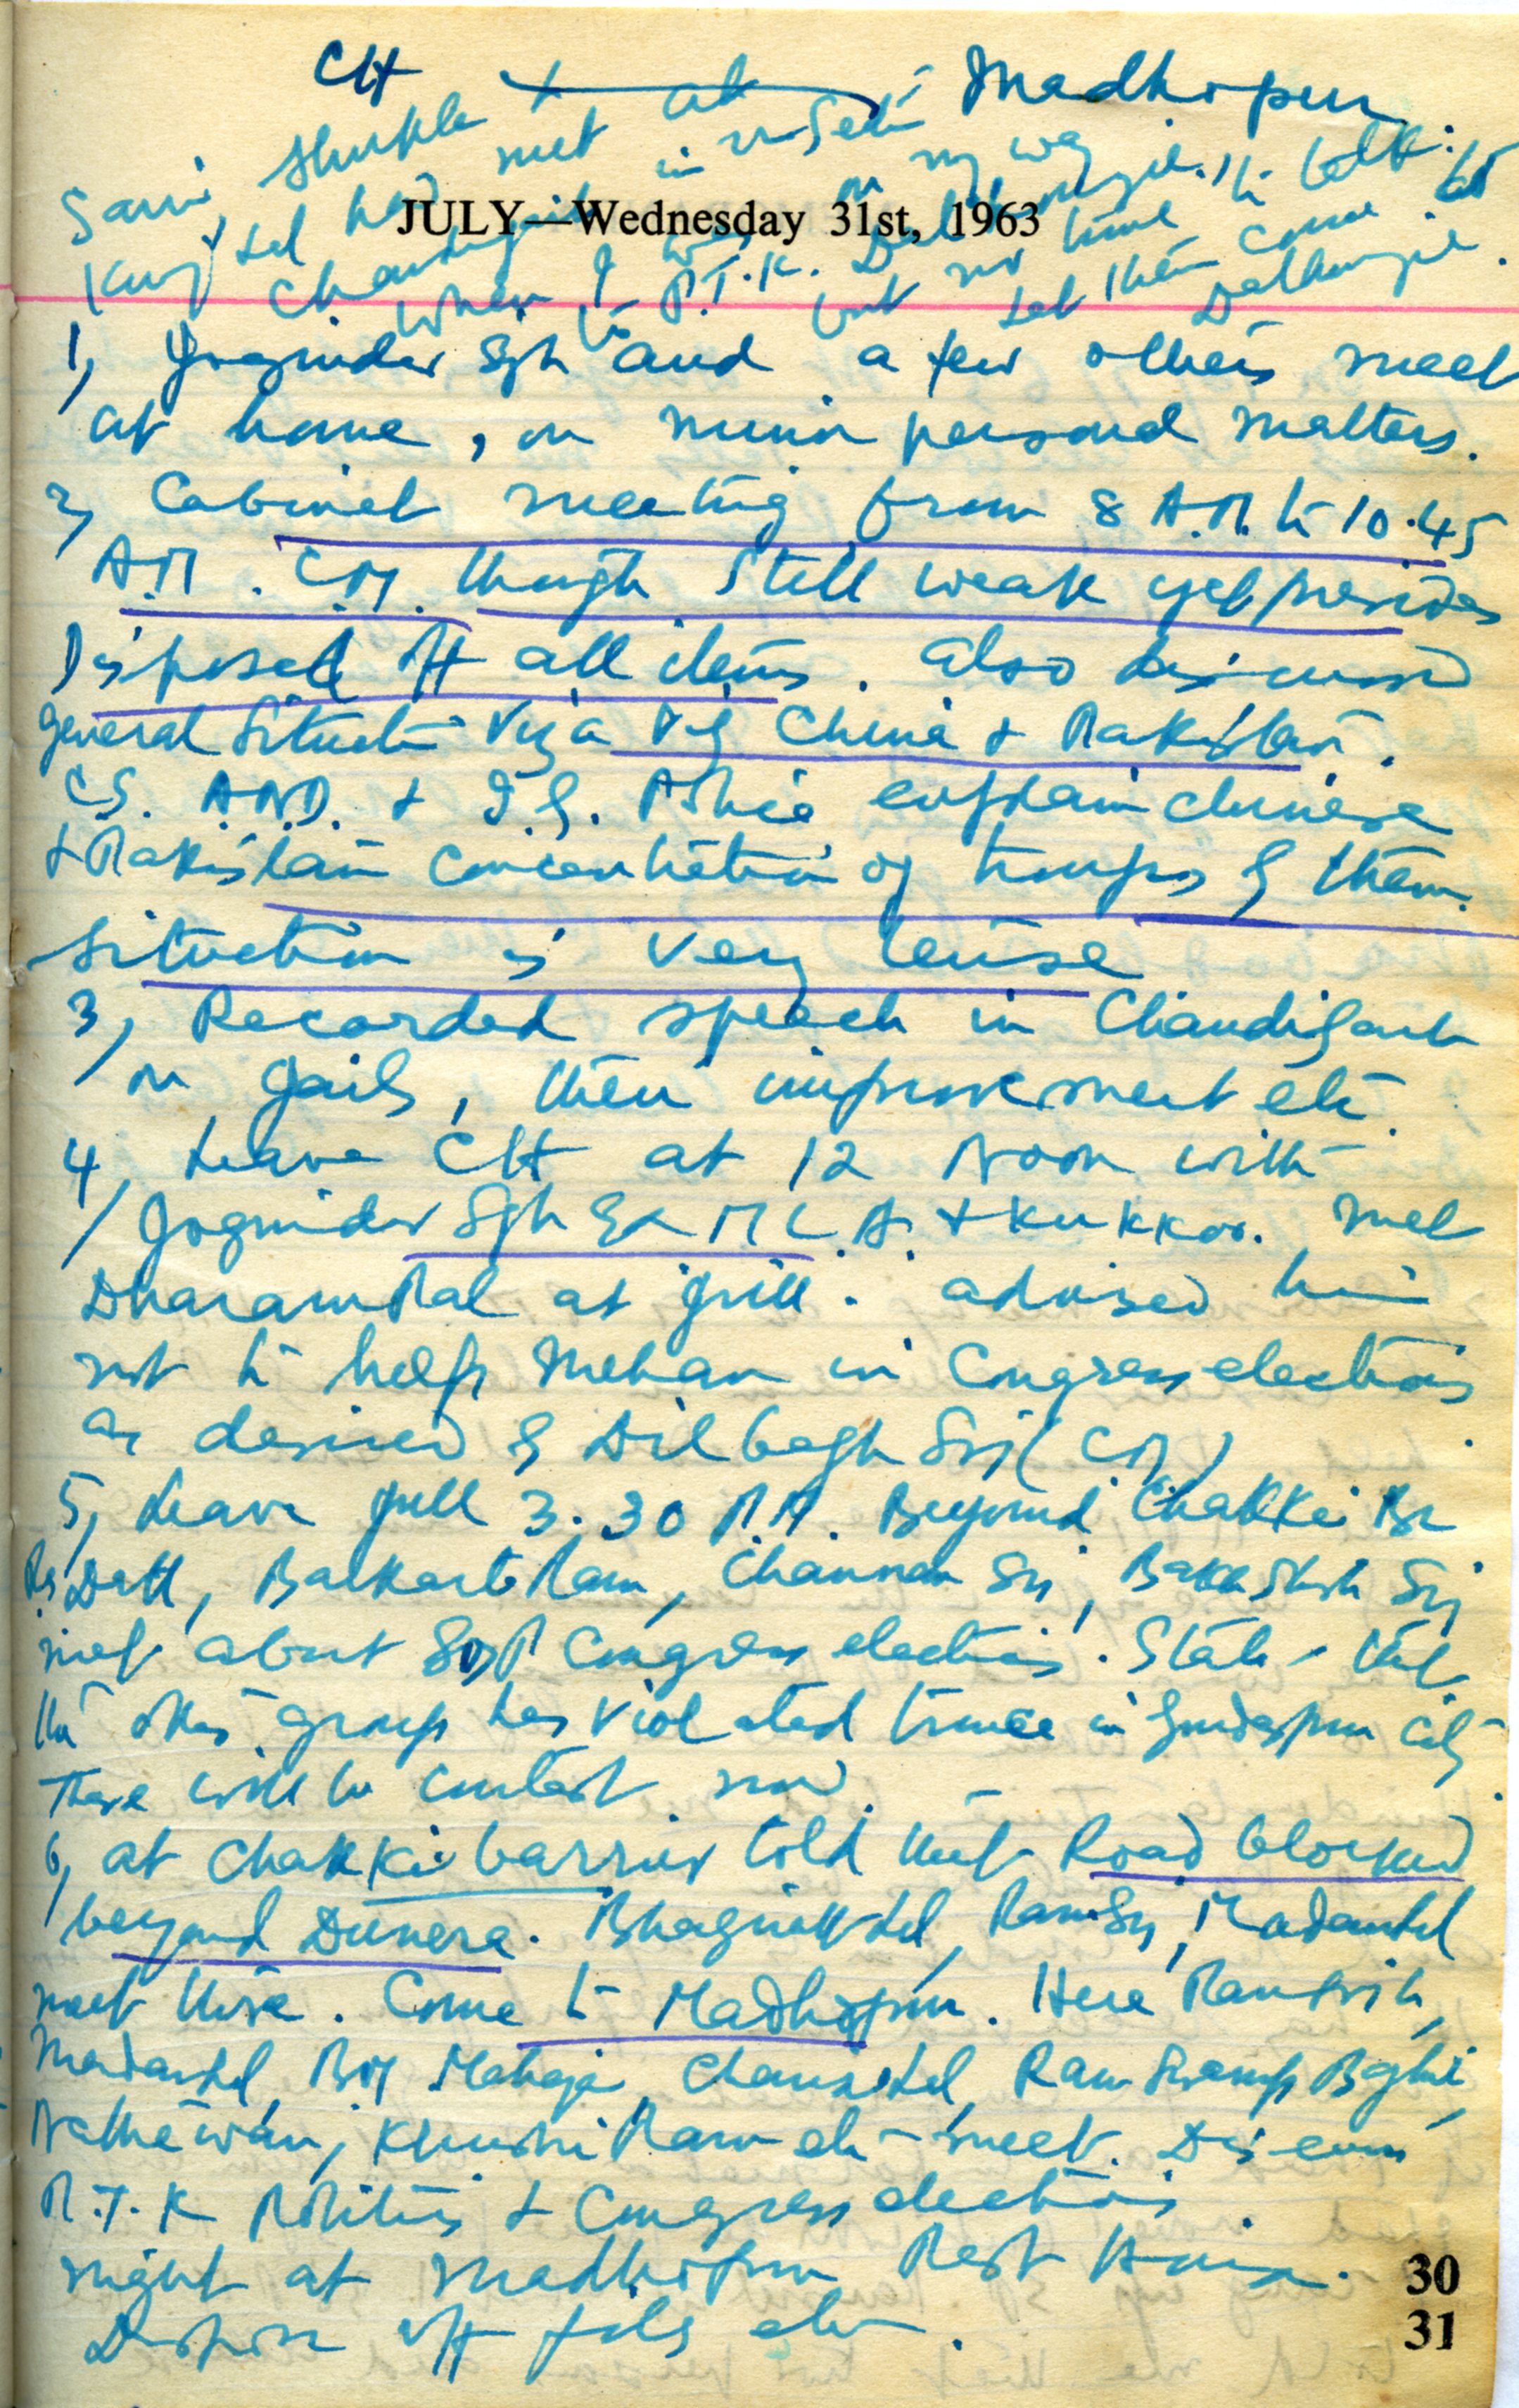 CH Madhopur
Shukla + at
had met in
Chandigarh on my way
when I was Dalhousie. to talk.
to P.T.K. but no time
Let them come at
Dalhousie.
JULY—Wednesday 31st, 1963
1, Joginder Sgh and a few others meet
at home, on minor personal matters.
2, Cabinet meeting from 8 A.M. to 10.45
A.M. C.M. though still weak yet presides
Disposed off all items. Also discussed
general situation Viz a Viz China & Pakistan.
C.S. & I.G. Police explain chinese
& Pakistan concentration of troops
situation is very tense
3, Recorded speech in Chandigarh
on Jails, their improvement etc.
4, Leave CH at 12 Noon with
Joginder Sgh Ex M L.A. & Kukkar. met
DharamPal at Jull. advised him
not to help Mohan in Congress elections
as desired by Dil bagh Sgh (CM)
5, Leave Jull 3.30 P.M. Beyond Chakki Br
Dutt, Balkart Ram, Channan Sgh, Bakhshish Sgh
met about GDSP Congress elections. State that
the other group has violated truce in Gurdaspur City
There will be contest now.
6, at Chakki barrier told that Road blocked
beyond Dunera. Lal, Ram Sgh, Madanlal
meet there. Come to Madhopur. Here
Madanlal, Mahajan, Chamanlal, Ram Swarup
Khushi Ram etc meet. Discuss
P.T.K Politics & Congress elections.
night at Madhopur Rest House.
Dispose off files etc.
30
31